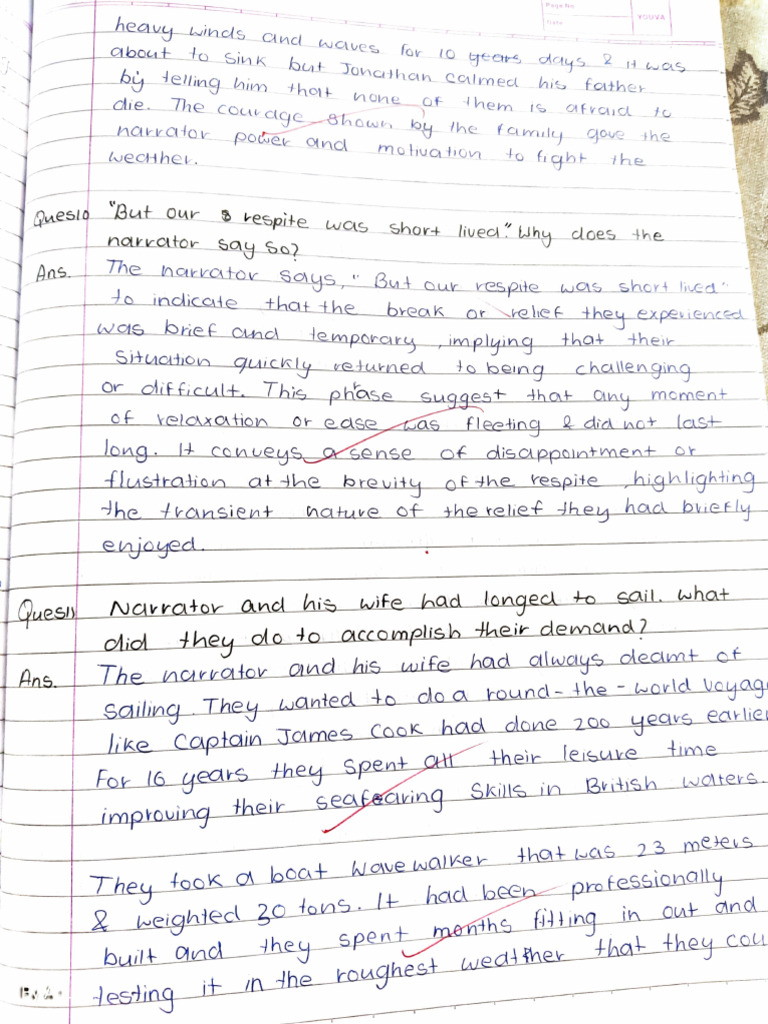 Page No.
Date
YOUVA
heavy winds and waves for 10 years days & it was
about to sink but Jonathan calmed his father
by telling him that none of them is afraid to
die. The courage shown by the family gave the
narrator power and motivation to fight the
weather.
Ques10 "But our respite was short lived." Why does the
narrator say so?
Ans. The narrator says, "But our respite was short lived"
to indicate that the break or relief they experienced
was brief and temporary, implying that their
situation quickly returned to being challenging
or difficult. This phrase suggest that any moment
of relaxation or ease was fleeting & did not last
long. It conveys a sense of disappointment or
flustration at the brevity of the respite, highlighting
the transient nature of the relief they had briefly
enjoyed.
Ques11 Narrator and his wife had longed to sail. What
did they do to accomplish their demand?
Ans. The narrator and his wife had always deamt of
sailing. They wanted to do a round-the-world voyag
like Captain James Cook had done 200 years earlier
For 16 years they spent all their leisure time
improving their seafearing skills in British waters.
They took a boat Wavewalker that was 23 meters
& weighted 30 tons. It had been professionally
built and they spent months fitting in out and
testing it in the roughest weather that they cou